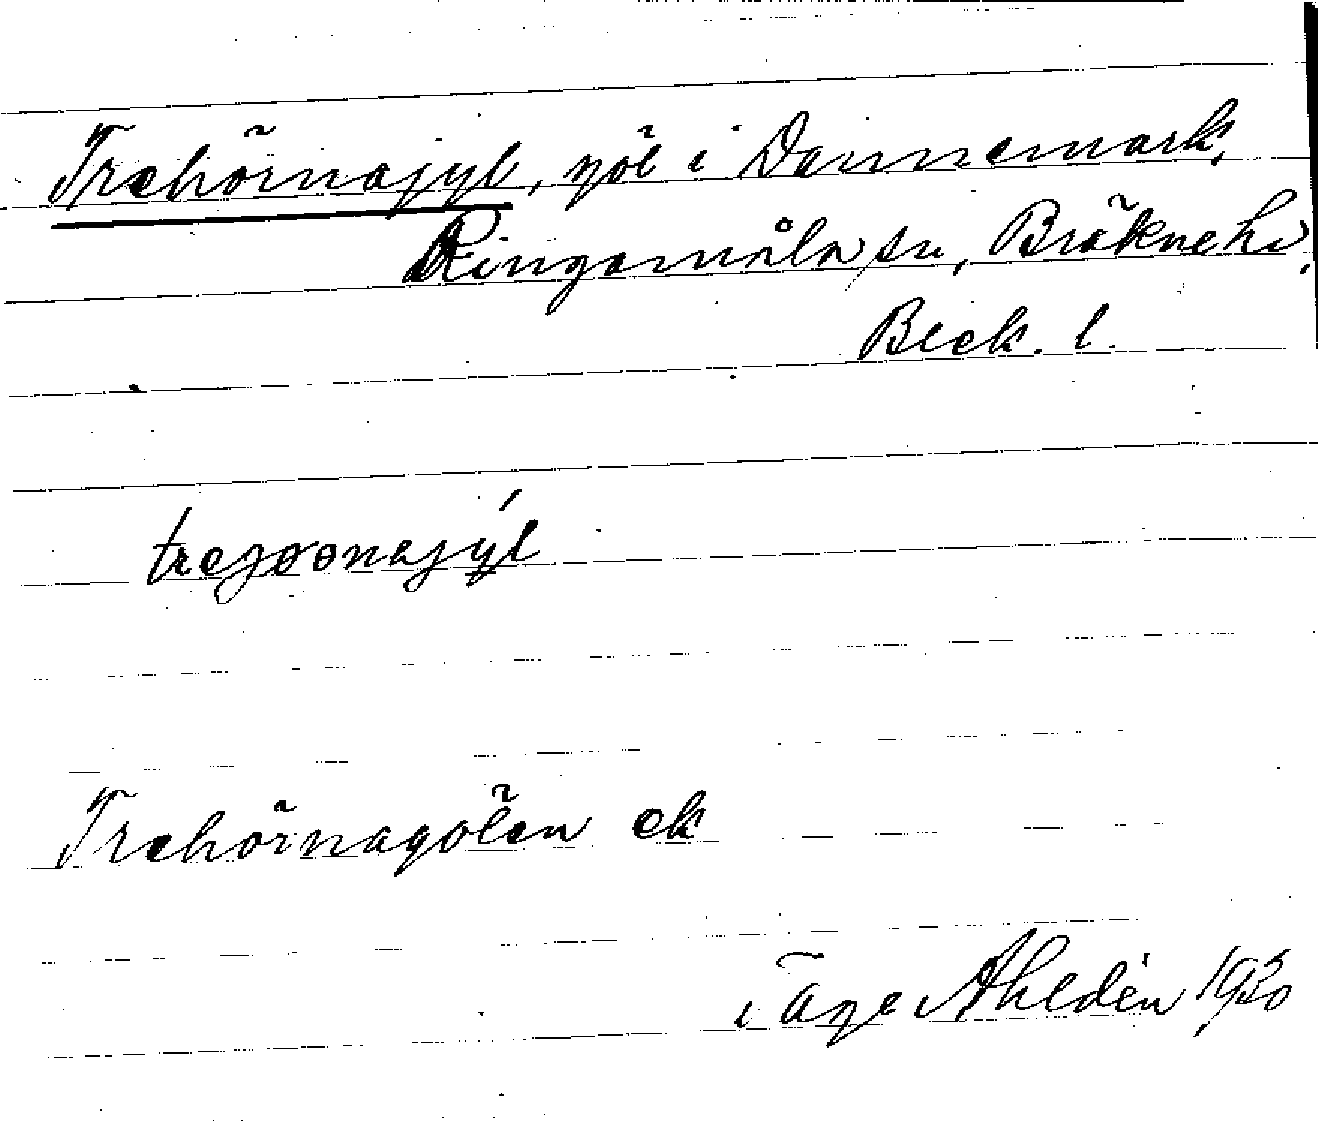 Trehörnajyl, göl i Dannemark,
Ringamåla sn, Bräkne hd,
Blek. l.
Trehörnagölen ek
Tage Ahldén 1930